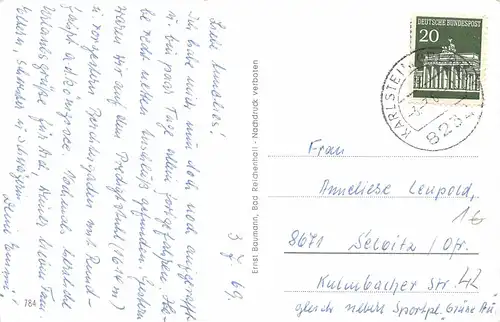 Liebe Annelies!
Ich habe mich nun doch noch aufgerafft
u. bin paar Tage allein fortgefahren. Ha-
be recht netten Anschluß gefunden. Gestern
waren wir auf dem Predigtstuhl (1614 m)
u. vorgestern Berchtesgaden mit Rund-
fahrt a. Königssee. Für heute herzliche
Urlaubsgrüße für Dich, Deiner lieben Fam.
Eltern, Schwester u. Schwager.
Deine Emmi
3. 7. 69.
784
Ernst Baumann, Bad Reichenhall - Nachdruck verboten
DEUTSCHE BUNDESPOST
20
KARLSTEIN
8234
Frau
Anneliese Leupold,
16
8671 Selbitz / Ofr.
Kulmbacher Str. 42
gleich neben Sportpl. "Grüne Au"